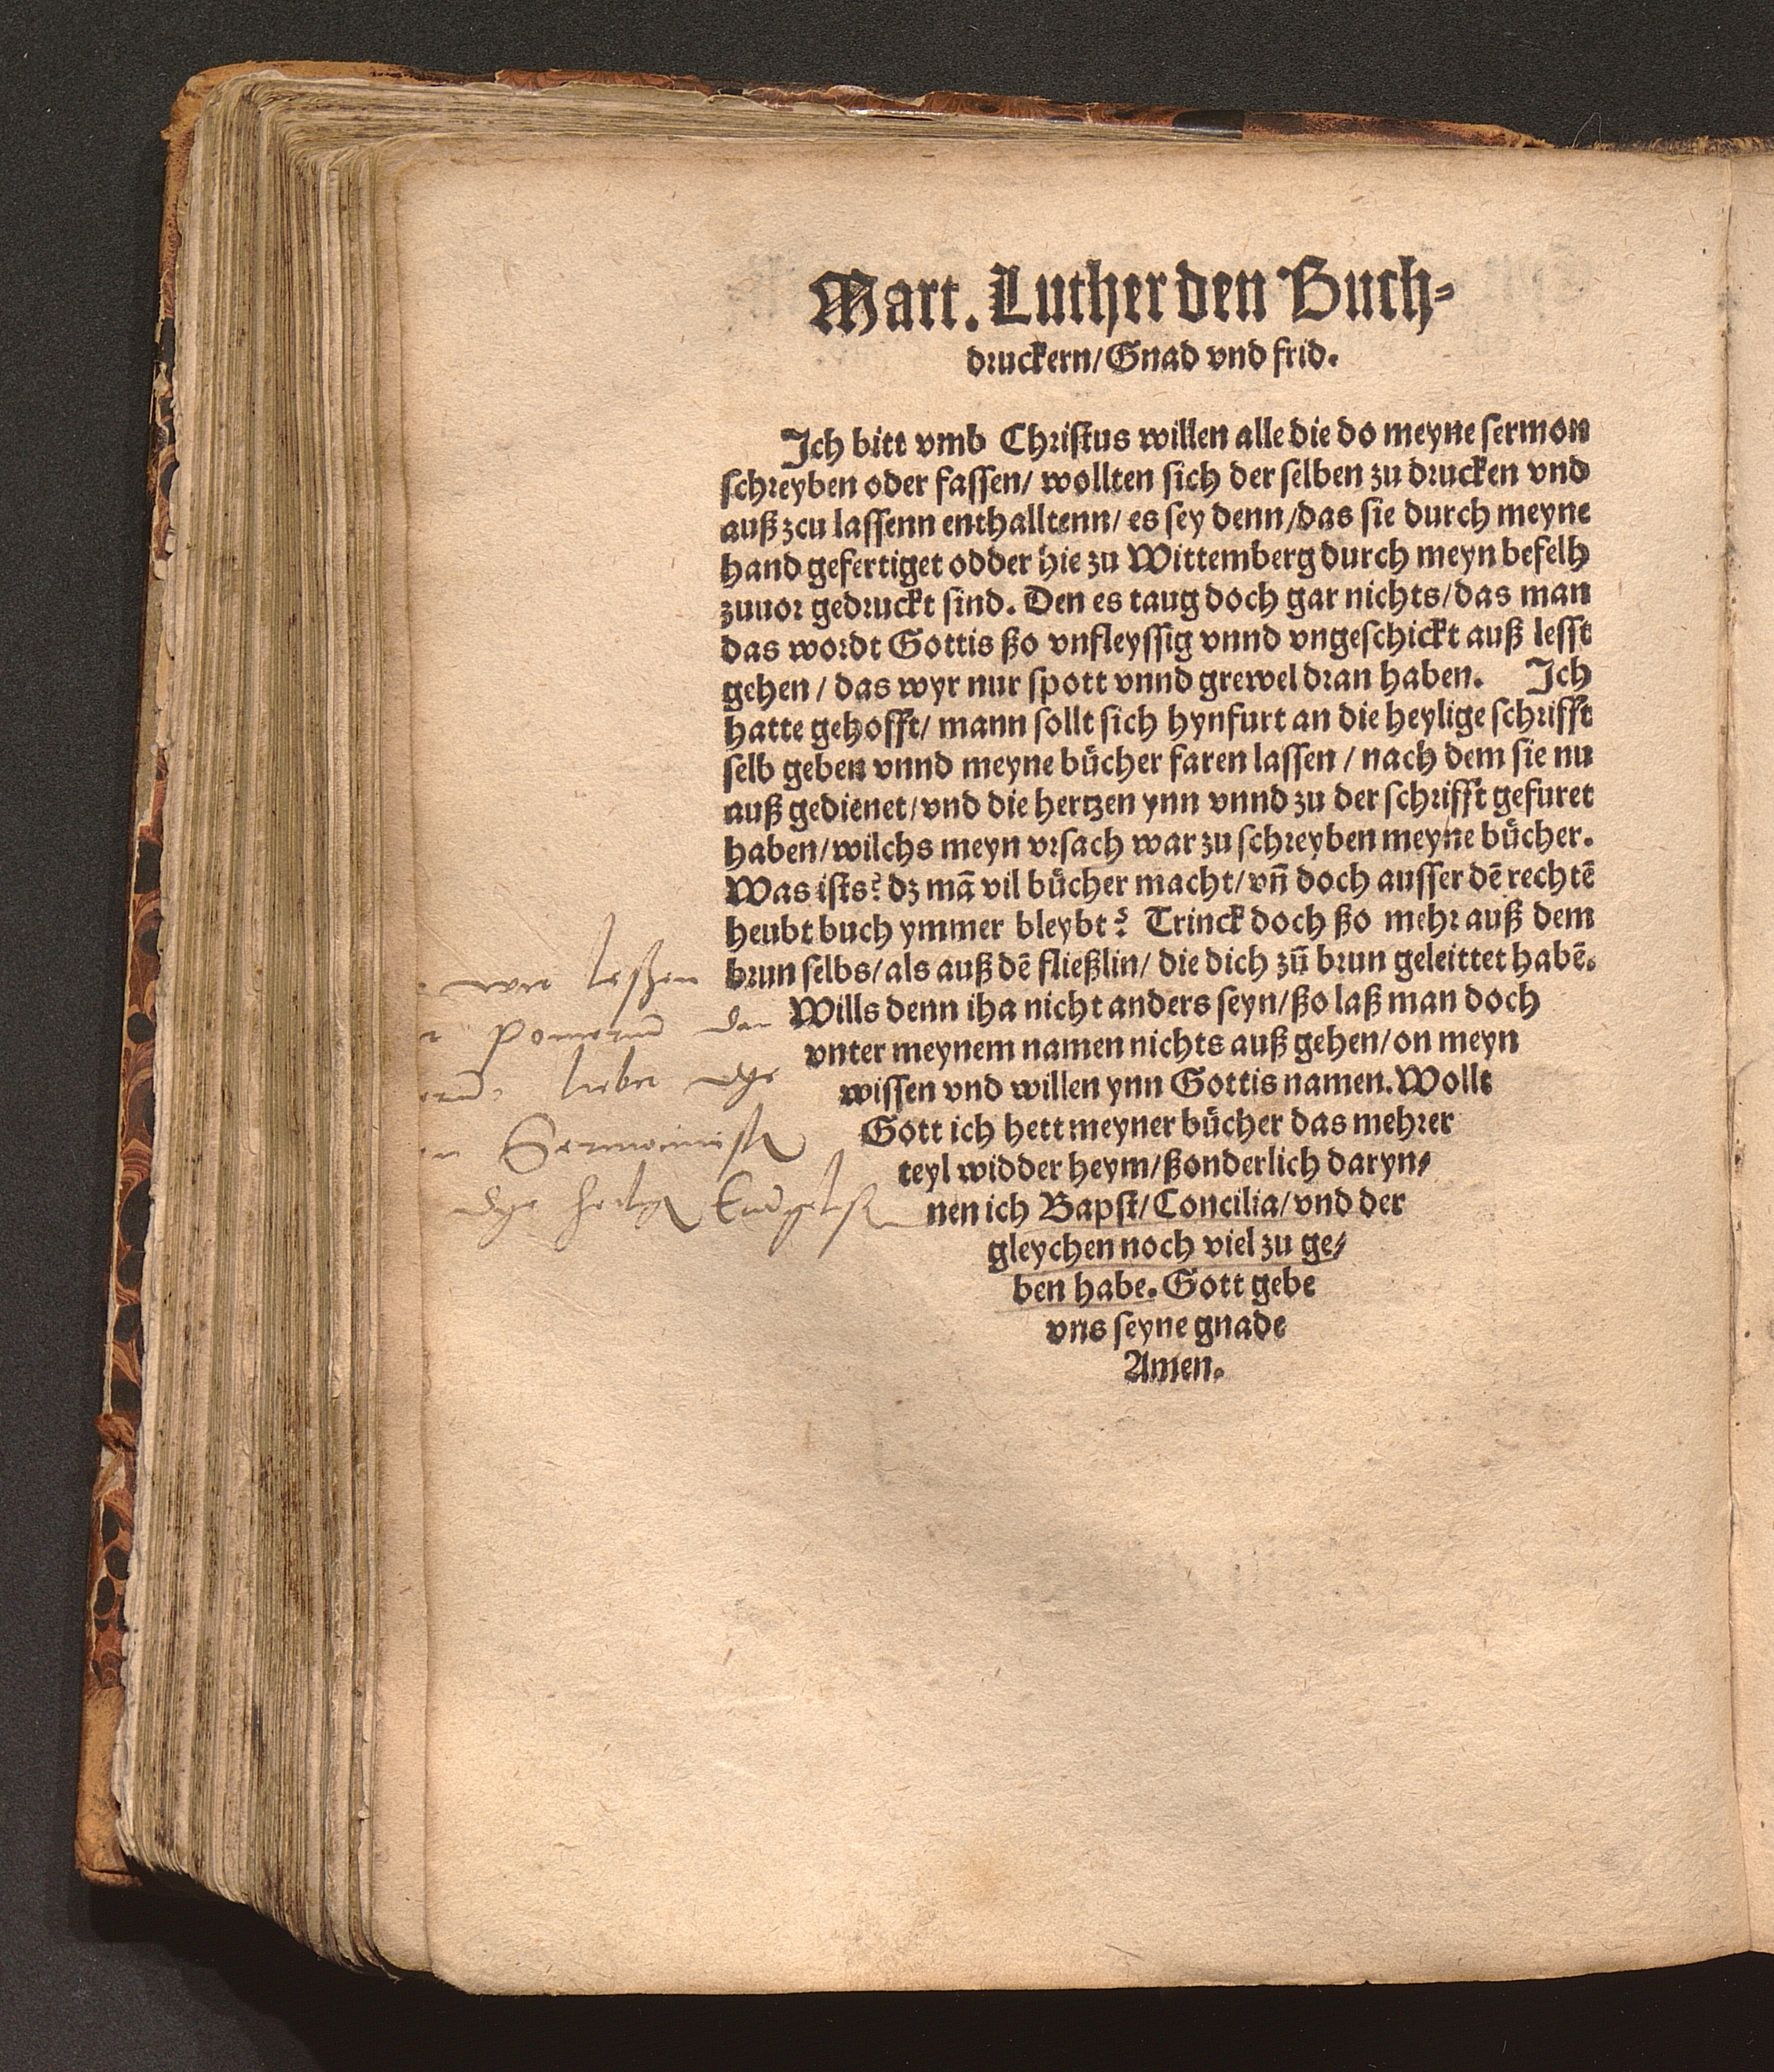 Mart. Luther den Buch-
druckern/Gnad vnd frid.
Ich bitt vmb Christus willen alle die do meyne sermon
schreyben oder fassen/ wollten sich der selben zu drucken vnd
auß zcu lassenn enthalltenn/ es sey denn/das sie durch meyne
hand gefertiget odder hie zu Wittemberg durch meyn befelh
zuuor gedruckt sind. Den es taug doch gar nichts/das man
das wordt Gottis ßo vnfleyssig vnnd vngeschickt auß lesst
gehen/ das wyr nur spott vnnd grewel dran haben. Ich
hatte gehofft/ mann sollt sich hynfurt an die heylige schrifft
selb geben vnnd meyne bücher faren lassen/ nach dem sie nu
auß gedienet/vnd die hertzen ynn vnnd zu der schrifft gefuret
haben/wilchs meyn vrsach war zu schreyben meyne bücher.
Was ists? dz mā vil bücher macht/vn̄ doch ausser dē rechtē
heubt buch ymmer bleybt? Trinck doch ßo mehr auß dem
brun selbs/als auß dē fließlin/ die dich zū brun geleittet habē.
Wills denn iha nicht anders seyn/ßo laß man doch
vnter meynem namen nichts auß gehen/on meyn
wissen vnd willen ynn Gottis namen. Wollt
Gott ich hett meyner bücher das mehrer
teyl widder heym/ßonderlich daryn-
nen ich Bapst/Concilia/vnd der
gleychen noch viel zu ge-
ben habe. Gott gebe
vns seyne gnade
Amen.